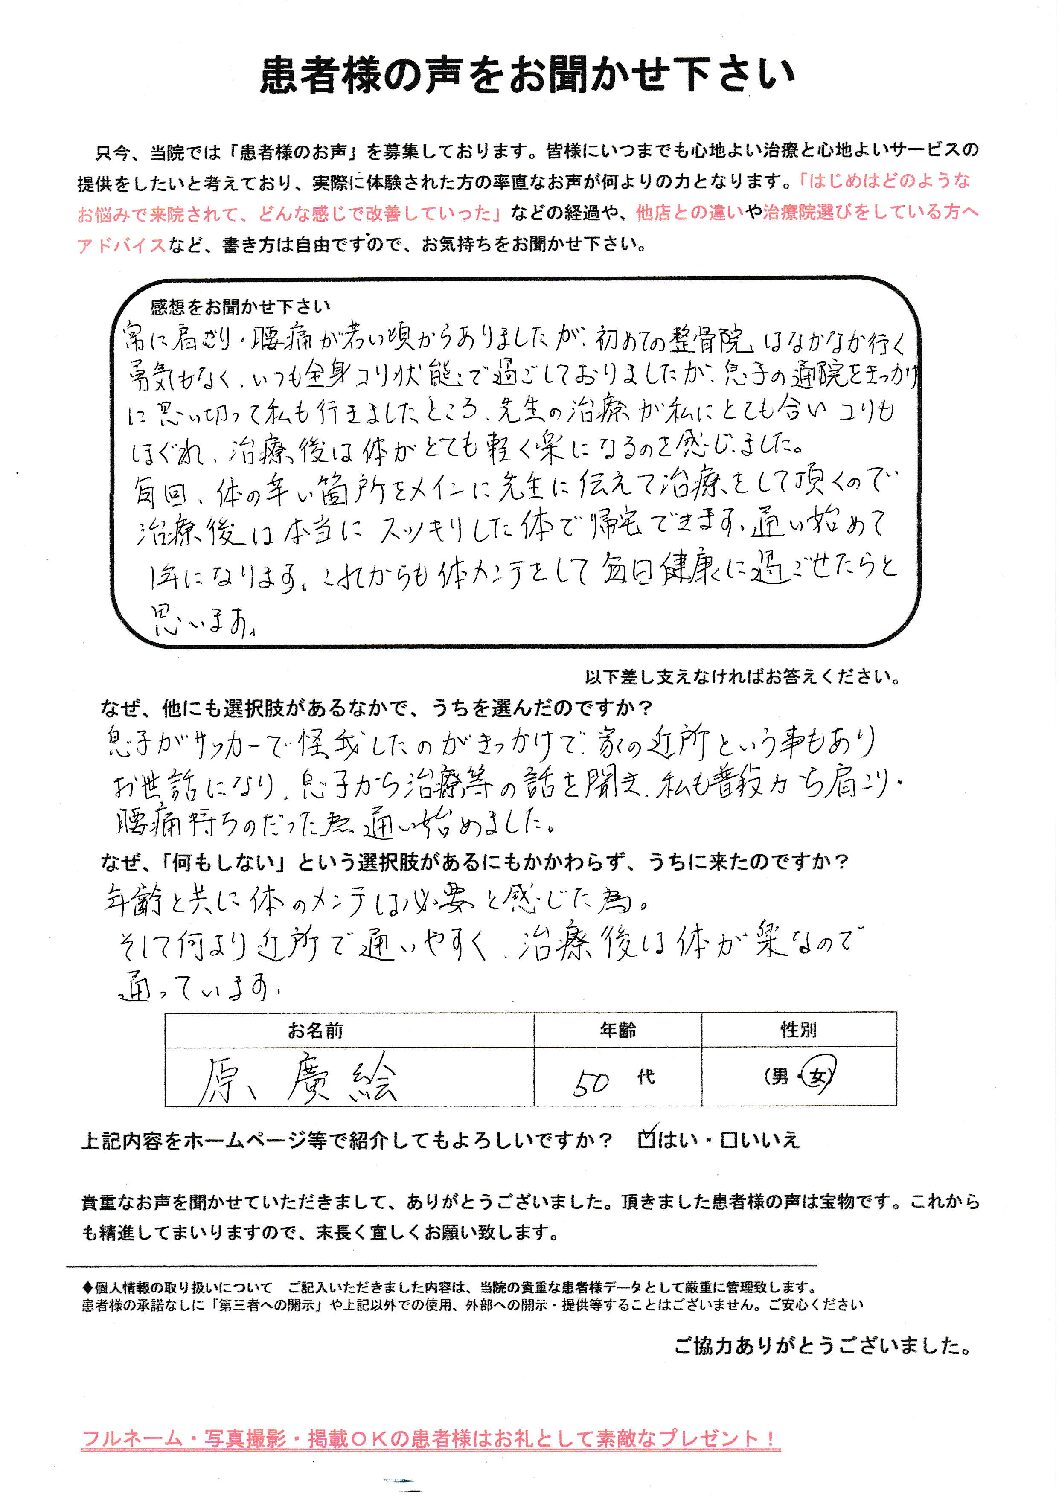 患者様の声をお聞かせ下さい
只今、当院では「患者様のお声」を募集しております。皆様にいつまでも心地よい治療と心地よいサービスの
提供をしたいと考えており、実際に体験された方の率直なお声が何よりの力となります。「はじめはどのような
お悩みで来院されて、どんな感じで改善していった」などの経過や、他店との違いや治療院選びをしている方へ
アドバイスなど、書き方は自由ですので、お気持ちをお聞かせ下さい。
感想をお聞かせ下さい
常に肩こり・腰痛が若い頃からありましたが、初めての整骨院はなかなか行く
勇気もなく、いつも全身コリ状態で過ごしておりましたが、息子の通院をきっかけ
に思い切って私も行きましたところ、先生の治療が私にとても合いコリも
ほぐれ、治療後は体がとても軽く楽になるのを感じました。
毎回、体の辛い箇所をメインに先生に伝えて治療をして頂くので
治療後は本当にスッキリした体で帰宅できます。通い始めて
1年になります。これからも体メンテをして毎日健康に過ごせたらと
思います。
以下差し支えなければお答えください。
なぜ、他にも選択肢があるなかで、うちを選んだのですか？
息子がサッカーで怪我したのがきっかけで、家の近所という事もあり
お世話になり、息子から治療等の話を聞き、私も普段から肩こり・
腰痛持ちのだった為、通い始めました。
なぜ、「何もしない」という選択肢があるにもかかわらず、うちに来たのですか？
年齢と共に体のメンテは必要と感じた為。
そして何より近所で通いやすく、治療後は体が楽なので
通っています。
お名前 年齢 性別
原、廣絵 50 代 (男・女)
上記内容をホームページ等で紹介してもよろしいですか？ ☑はい・□いいえ
貴重なお声を聞かせていただきまして、ありがとうございました。頂きました患者様の声は宝物です。これから
も精進してまいりますので、末長く宜しくお願い致します。
◆個人情報の取り扱いについて ご記入いただきました内容は、当院の貴重な患者様データとして厳重に管理致します。
患者様の承諾なしに「第三者への開示」や上記以外での使用、外部への開示・提供等することはございません。ご安心ください
ご協力ありがとうございました。
フルネーム・写真撮影・掲載ＯＫの患者様はお礼として素敵なプレゼント！